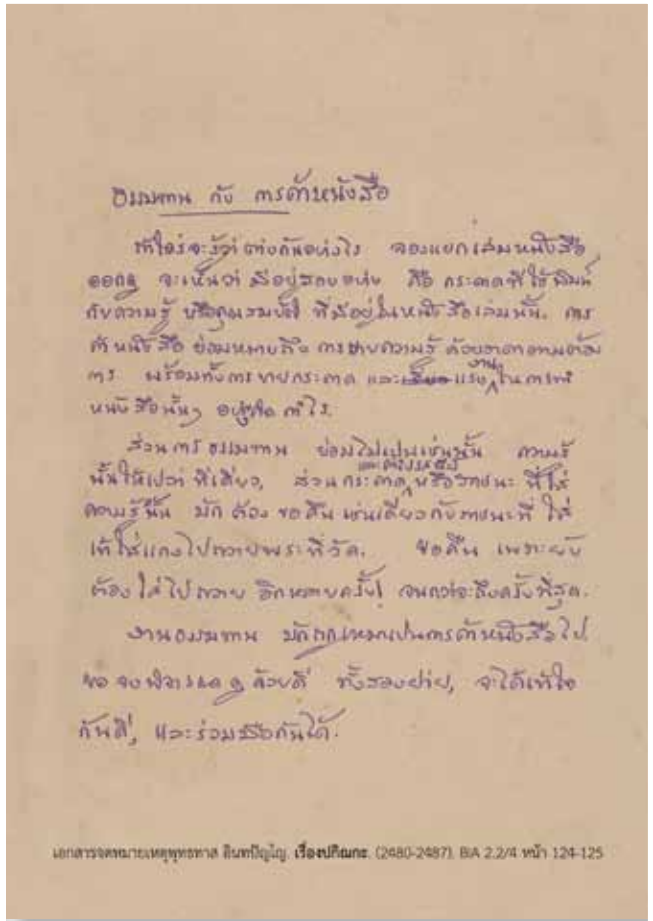 ธรรมทาน กับ การค้าหนังสือ
ถ้าใคร่จะรู้ว่า ต่างกันอย่างไร ลองแยกเล่มหนังสือ
ออกดู จะเห็นว่า มีอยู่สองอย่าง คือ กระดาดที่ใช้พิมพ์
กับความรู้ หรือคุณสมบัติ ที่มีอยู่ในหนังสือเล่มนั้น. การ
ค้าหนังสือ ย่อมหมายถึง การขายความรู้ ด้วยราคาตามต้อง
การ พร้อมทั้งการขายกระดาด และ แรงงาน ในการทำ
หนังสือนั้นๆ อย่างคิด กำไร.
ส่วนการธรรมทาน ย่อมไม่เป็นเช่นนั้น ความรู้
นั้นให้เปล่า ทีเดียว, ส่วนกระดาด และค่าแรงพิมพ์ หรือภาชนะ ที่ใส่
ความรู้นั้น มัก ต้อง ขอคืน เช่นเดียวกับภาชนะที่ ใส่
เขาใส่แกงไปถวายพระที่วัด. ขอคืน เพราะยัง
ต้องใส่ไปถวาย อีกหลายครั้ง จนกว่าจะถึงครั้งที่สุด.
งานธรรมทาน มักถูกเหมาเป็นการค้าหนังสือไป
ขอ จงพิจารณาดู ด้วยดี ทั้งสองฝ่าย, จะได้เข้าใจ
กันดี, และร่วมมือกันได้.
เอกสารจดหมายเหตุพุทธทาส อินทปัญโญ. เรื่องปกิณกะ. (2480-2487). BIA 2.2/4 หน้า 124-125